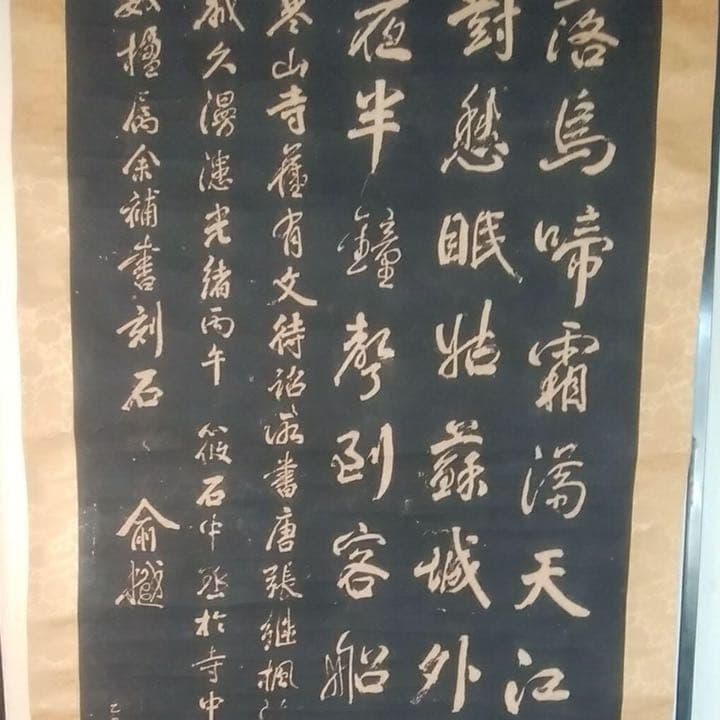 落烏啼霜滿天江
對愁眠姑蘇城外
夜半鐘聲到客船
寒山寺舊有文待詔所書唐張繼楓
歲久漫漶光緒丙午 筱石中丞於寺中
數楹屬余補書刻石 俞樾